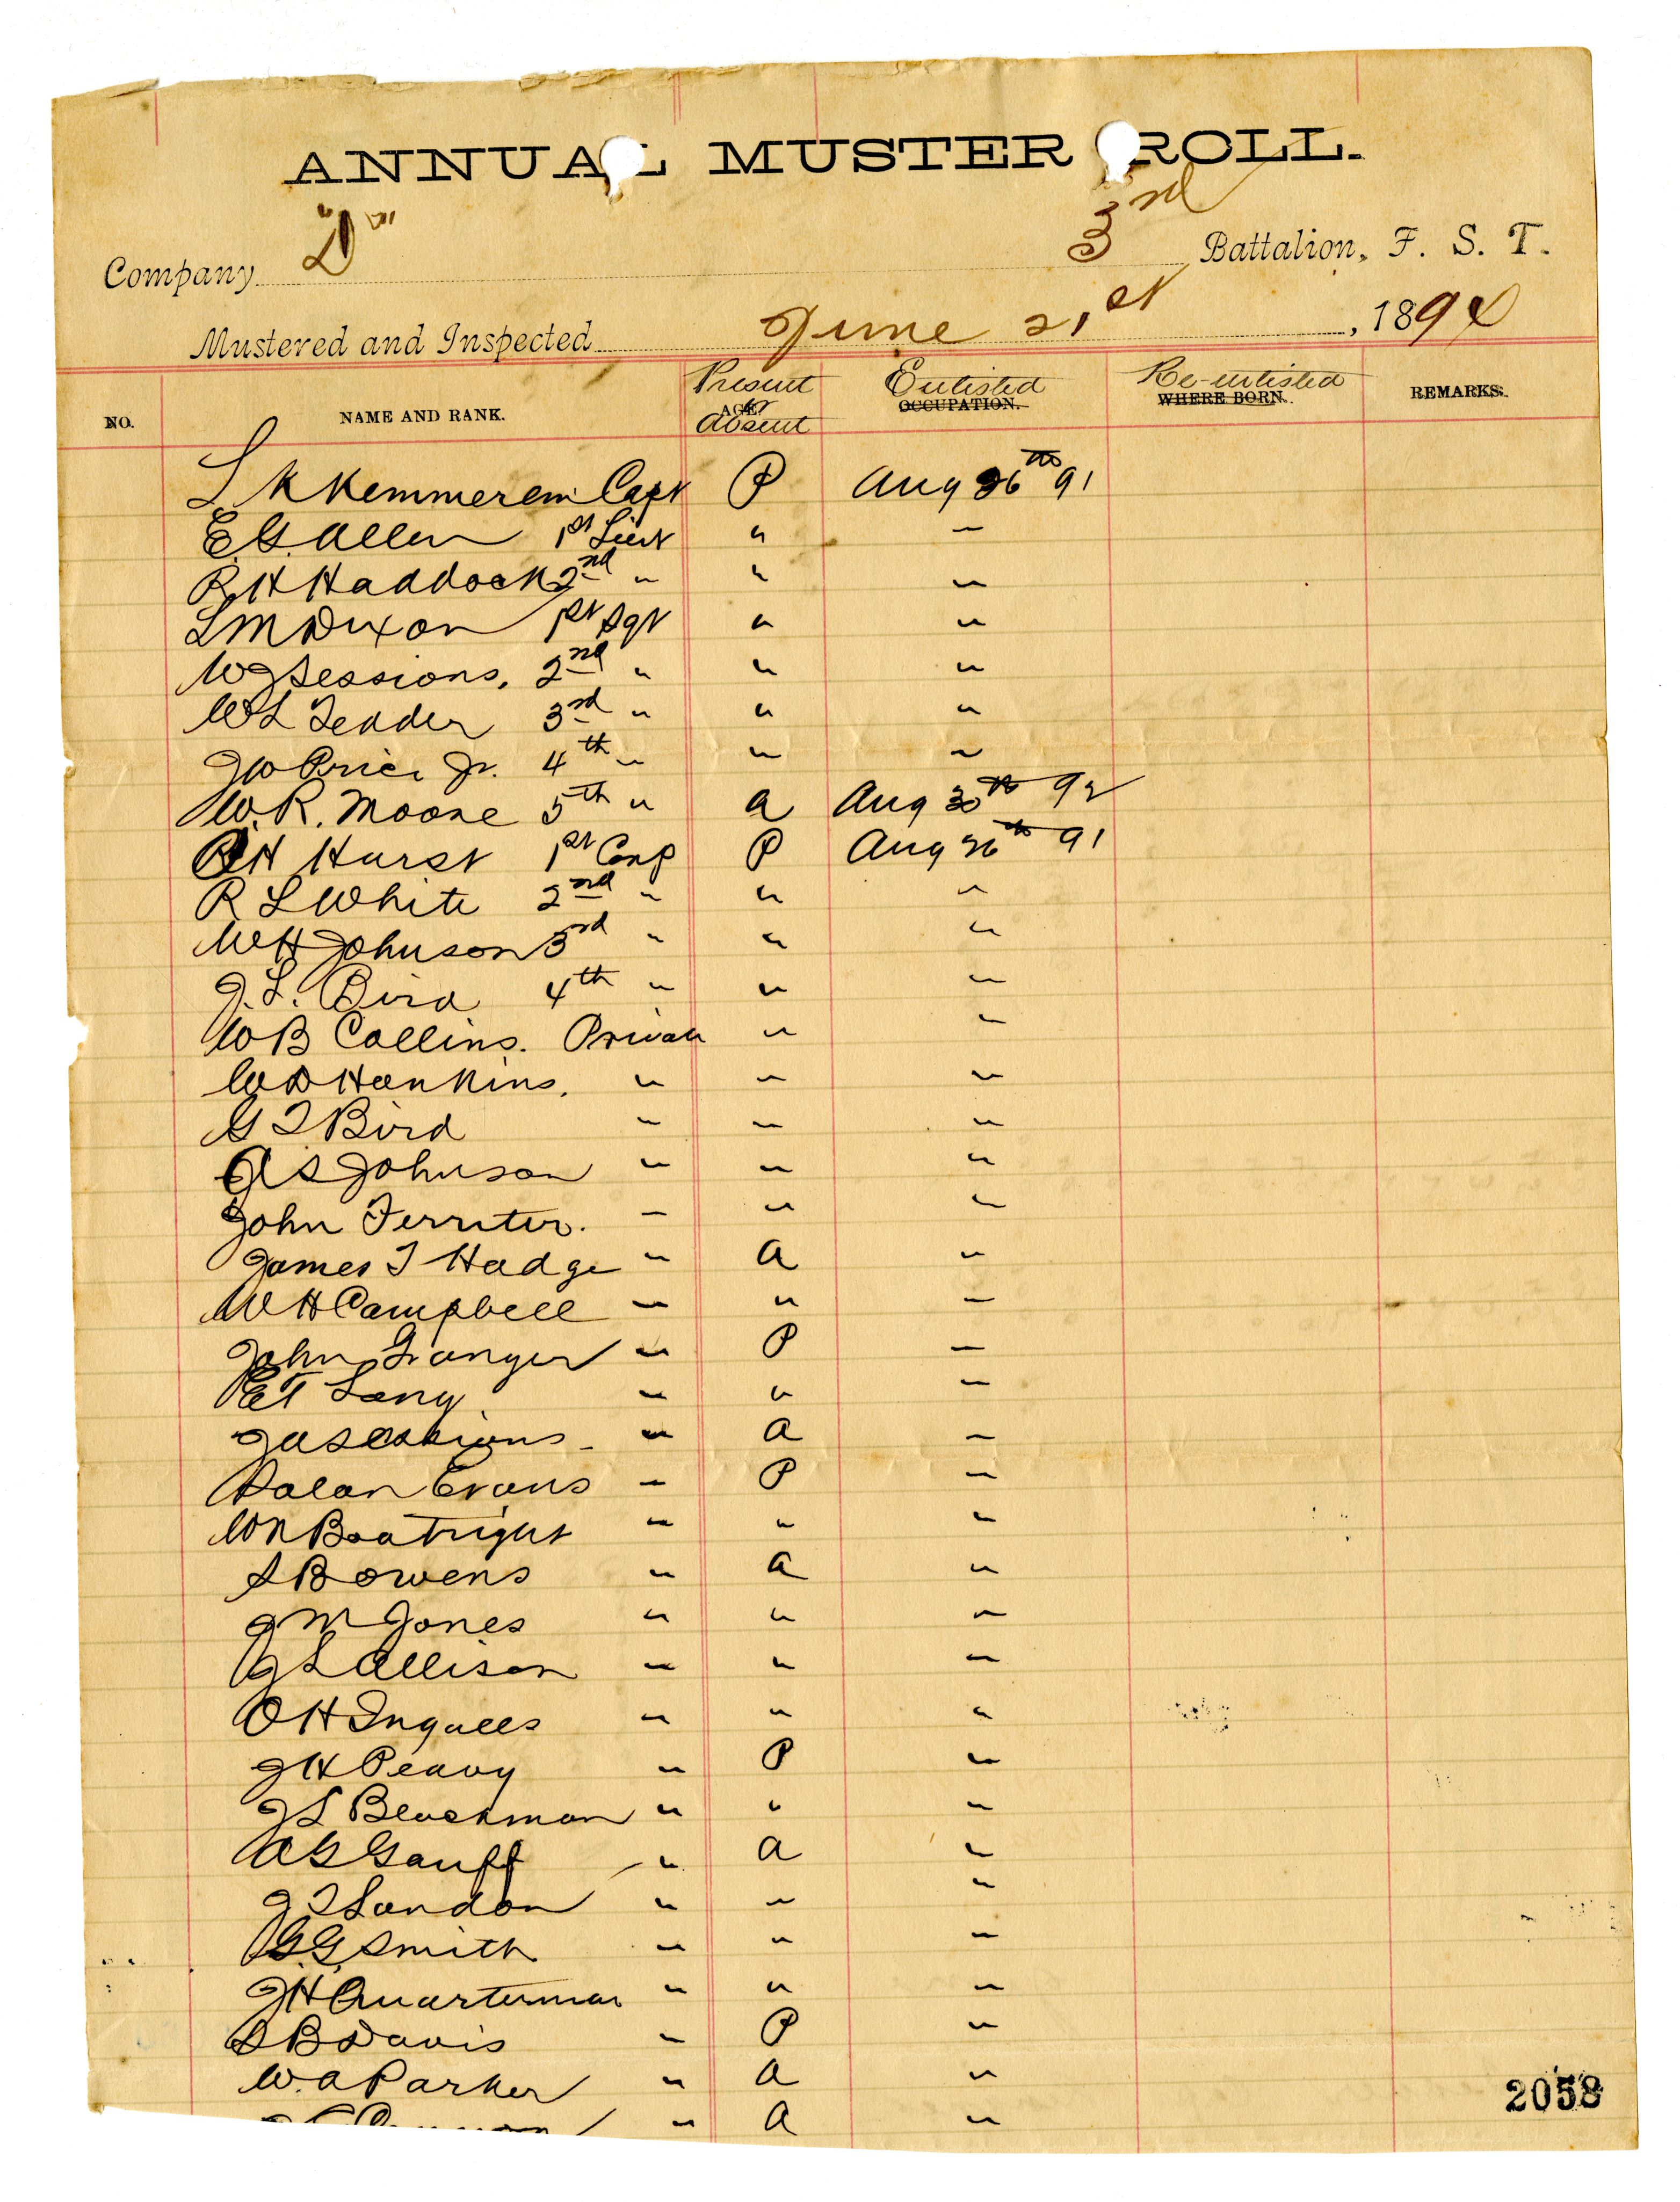 ANNUAL MUSTER ROLL.
Company "D" 3rd Battalion, F. S. T.
Mustered and Inspected June 21st, 1894
NO. NAME AND RANK. Present or Absent AGE. Enlisted OCCUPATION. Re-enlisted WHERE BORN. REMARKS.
L K Kemmerem Capt P Aug 26th 91
E. G. Allen 1st Lieut " "
R H Haddock 2nd " " "
L M Dixon 1st Sgt " "
W J Sessions. 2nd " " "
W L Teader 3rd " " "
J W Price Jr. 4th " " "
W. R. Moore 5th " a Aug 30th 92
H Hurst 1st Corp P Aug 26th 91
R L White 2nd " " "
W H Johnson 3rd " " "
J. L. Bird 4th " " "
W B Collins. Private " "
W D Hankins. " " "
G T Bird " " "
A S Johnson " " "
John Ferriter. " " "
James T Hodge " a "
W H Campbell " " "
John Granger " P "
E T Lang " " "
J A Sessions " a "
Dolan Evans " P "
W N Boatright " " "
S B Owens " a "
J M Jones " " "
J L Allison " " "
O H Ingalls " " "
J H Peavy " P "
J L Blackman " " "
A G Gauff " a "
J T Landon " " "
G. G. Smith " " "
J H Quarterman " " "
S B Davis " P "
W. A Parker " a "
" a "
2058